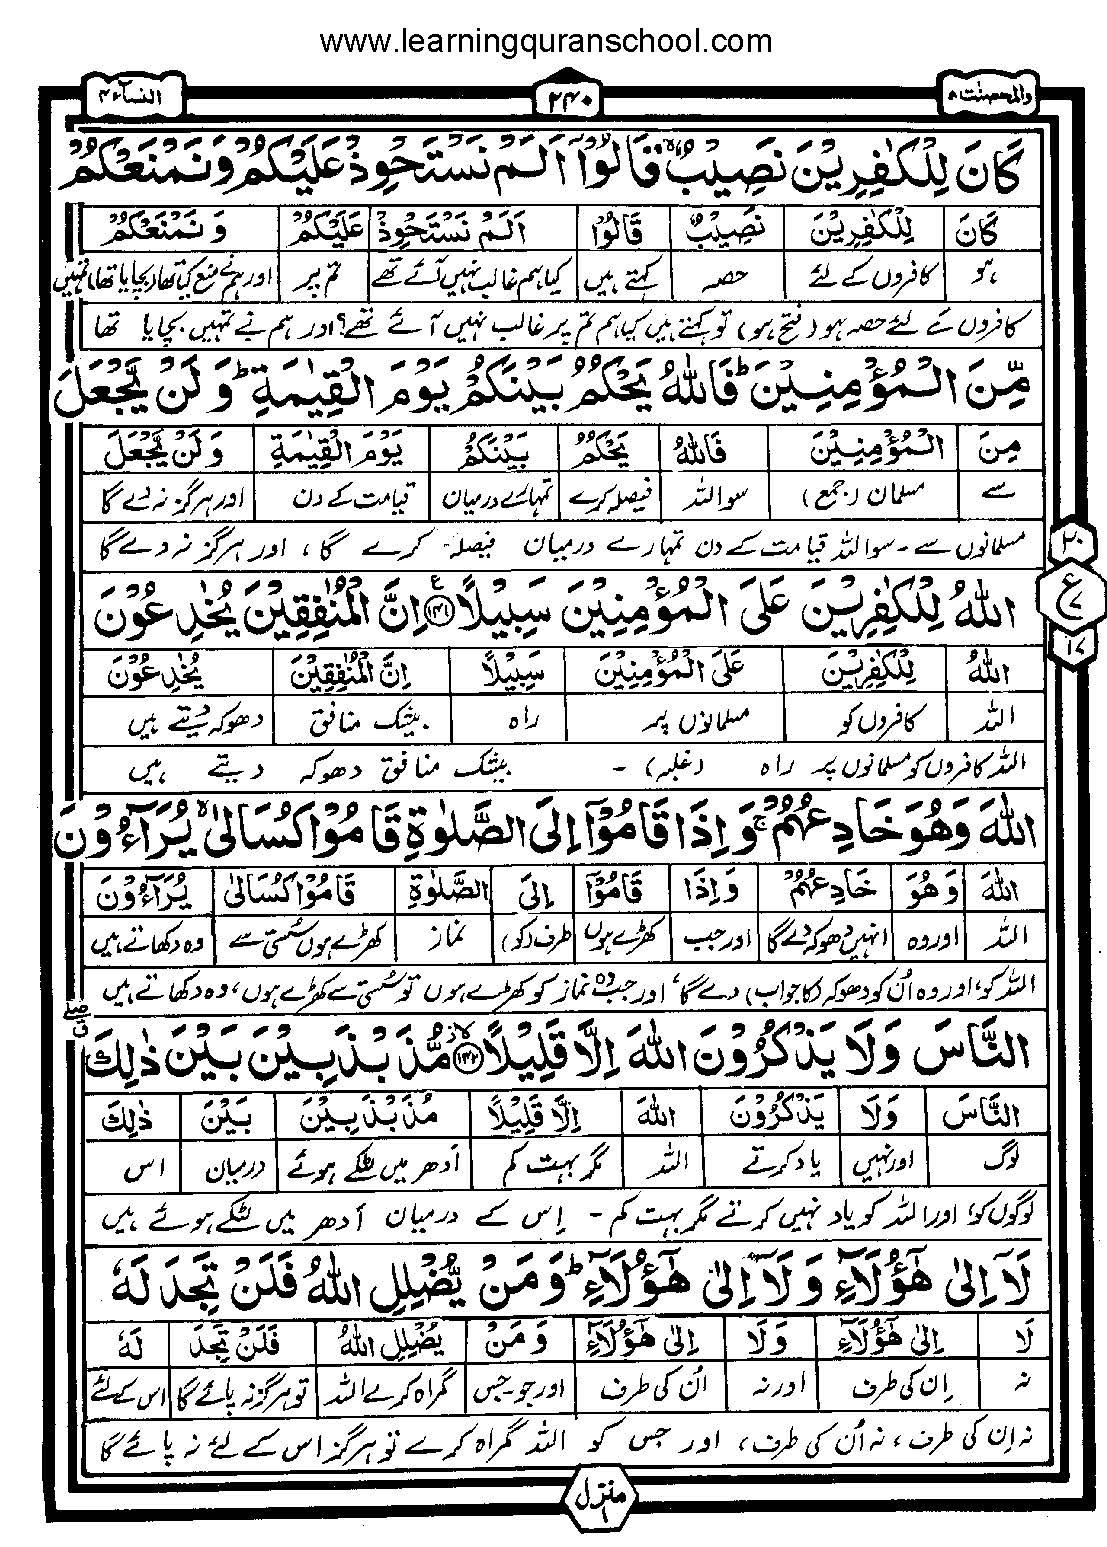 www.learningquranschool.com
والمحصنت ۵ ۲۴۰ النسآء ۴
كَانَ لِلْكٰفِرِيْنَ نَصِيْبٌ ۙ قَالُوْۤا اَلَمْ نَسْتَحْوِذْ عَلَيْكُمْ وَنَمْنَعْكُمْ
كَانَ لِلْكٰفِرِيْنَ نَصِيْبٌ قَالُوْۤا اَلَمْ نَسْتَحْوِذْ عَلَيْكُمْ وَنَمْنَعْكُمْ
ہو کافروں کے لئے حصہ کہتے ہیں کیا ہم غالب نہیں آئے تھے تم پر اور ہم نے منع کیا تھا (بچایا تھا) تمہیں
کافروں کے لئے حصہ ہو (فتح ہو) تو کہتے ہیں کیا ہم تم پر غالب نہیں آئے تھے؟ اور ہم نے تمہیں بچایا تھا
مِّنَ الْمُؤْمِنِيْنَ ؕ فَاللّٰهُ يَحْكُمُ بَيْنَكُمْ يَوْمَ الْقِيٰمَةِ ؕ وَلَنْ يَّجْعَلَ
مِنَ الْمُؤْمِنِيْنَ فَاللّٰهُ يَحْكُمُ بَيْنَكُمْ يَوْمَ الْقِيٰمَةِ وَلَنْ يَّجْعَلَ
سے مسلمان (جمع) سو اللہ فیصلہ کرے تمہارے درمیان قیامت کے دن اور ہرگز نہ دے گا
مسلمانوں سے - سو اللہ قیامت کے دن تمہارے درمیان فیصلہ کرے گا، اور ہرگز نہ دے گا
۲۰
ع ۷
۱۷
اللّٰهُ لِلْكٰفِرِيْنَ عَلَى الْمُؤْمِنِيْنَ سَبِيْلًا ﴿۱۴۱﴾ ع اِنَّ الْمُنٰفِقِيْنَ يُخٰدِعُوْنَ
اللّٰهُ لِلْكٰفِرِيْنَ عَلَى الْمُؤْمِنِيْنَ سَبِيْلًا اِنَّ الْمُنٰفِقِيْنَ يُخٰدِعُوْنَ
اللہ کافروں کو مسلمانوں پر راہ بیشک منافق دھوکہ دیتے ہیں
اللہ کافروں کو مسلمانوں پر راہ (غلبہ) - بیشک منافق دھوکہ دیتے ہیں
اللّٰهَ وَهُوَ خَادِعُهُمْ ۚ وَاِذَا قَامُوْۤا اِلَى الصَّلٰوةِ قَامُوْا كُسَالٰى ۙ يُرَآءُوْنَ
اللّٰهَ وَهُوَ خَادِعُهُمْ وَاِذَا قَامُوْۤا اِلَى الصَّلٰوةِ قَامُوْا كُسَالٰى يُرَآءُوْنَ
اللہ اور وہ انہیں دھوکہ دے گا اور جب کھڑے ہوں طرف (کو) نماز کھڑے ہوں سستی سے وہ دکھاتے ہیں
اللہ کو، اور وہ اُن کو دھوکہ (کا جواب) دے گا، اور جب وہ نماز کو کھڑے ہوں تو سستی سے کھڑے ہوں، وہ دکھاتے ہیں
النَّاسَ وَلَا يَذْكُرُوْنَ اللّٰهَ اِلَّا قَلِيْلًا ﴿۱۴۲﴾ مُّذَبْذَبِيْنَ بَيْنَ ذٰلِكَ
النَّاسَ وَلَا يَذْكُرُوْنَ اللّٰهَ اِلَّا قَلِيْلًا مُذَبْذَبِيْنَ بَيْنَ ذٰلِكَ
لوگ اور نہیں یاد کرتے اللہ مگر بہت کم اَدھر میں لٹکے ہوئے درمیان اس
لوگوں کو، اور اللہ کو یاد نہیں کرتے مگر بہت کم - اِس کے درمیان اَدھر میں لٹکے ہوئے ہیں
لَاۤ اِلٰى هٰٓؤُلَآءِ وَلَاۤ اِلٰى هٰٓؤُلَآءِ ؕ وَمَنْ يُّضْلِلِ اللّٰهُ فَلَنْ تَجِدَ لَهٗ
لَا اِلٰى هٰٓؤُلَآءِ وَلَا اِلٰى هٰٓؤُلَآءِ وَمَنْ يُّضْلِلِ اللّٰهُ فَلَنْ تَجِدَ لَهٗ
نہ اِن کی طرف اور نہ اُن کی طرف اور جو - جس گمراہ کرے اللہ تو ہرگز نہ پائے گا اس کے لئے
نہ اِن کی طرف، نہ اُن کی طرف، اور جس کو اللہ گمراہ کرے تو ہرگز اس کے لئے نہ پائے گا
منزل ۱